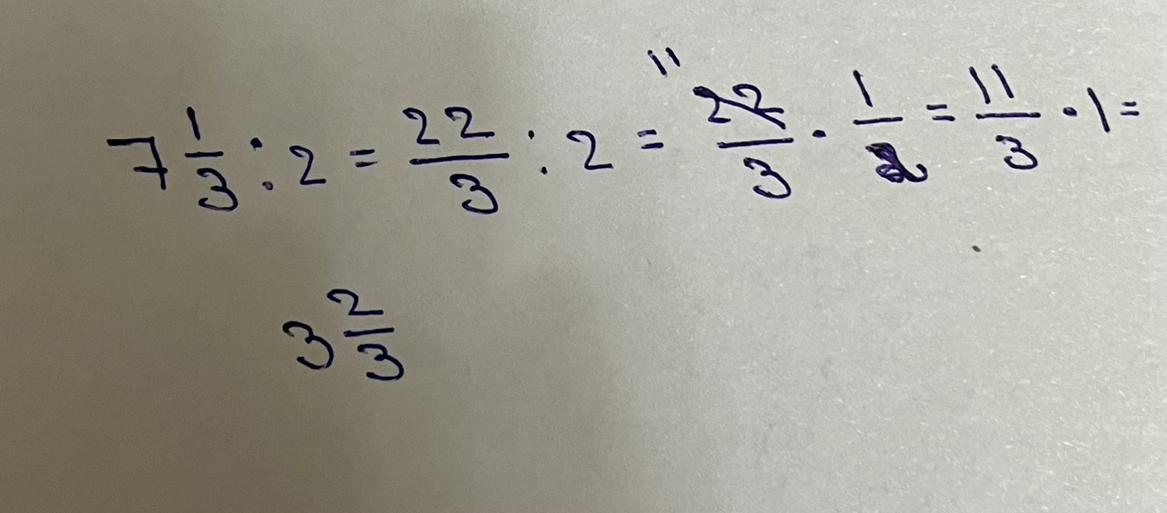 7 1/3 : 2 = 22/3 : 2 = 11 22/3 · 1/2 = 11/3 · 1 =
3 2/3